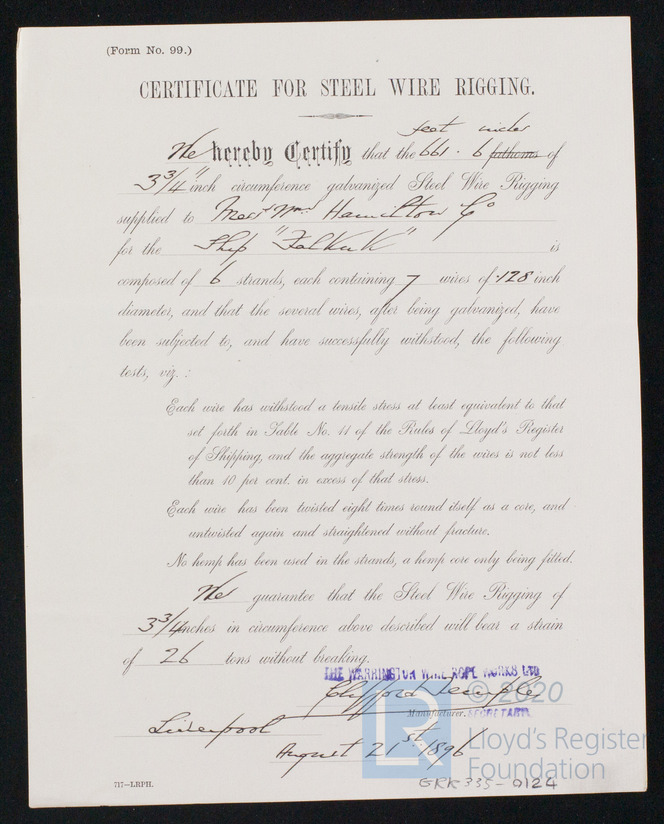 (Form No. 99.)
CERTIFICATE FOR STEEL WIRE RIGGING.
feet inches
We hereby Certify that the 661 . 6 fathoms of
3 3/4" inch circumference galvanized Steel Wire Rigging
supplied to Messrs Wm Hamilton & Co
for the Ship "Falkirk" is
composed of 6 strands, each containing 7 wires of .128 inch
diameter, and that the several wires, after being galvanized, have
been subjected to, and have successfully withstood, the following
tests, viz. :
Each wire has withstood a tensile stress at least equivalent to that
set forth in Table No. 11 of the Rules of Lloyd's Register
of Shipping, and the aggregate strength of the wires is not less
than 10 per cent. in excess of that stress.
Each wire has been twisted eight times round itself as a core, and
untwisted again and straightened without fracture.
No hemp has been used in the strands, a hemp core only being fitted.
We guarantee that the Steel Wire Rigging of
3 3/4 inches in circumference above described will bear a strain
of 26 tons without breaking.
THE WARRINGTON WIRE ROPE WORKS LTD
Clifford Temple
Manufacturer. SECRETARY.
Liverpool
August 21st 1896
717—LRPH.
GRK335-0124
LR © 2020
Lloyd's Register
Foundation